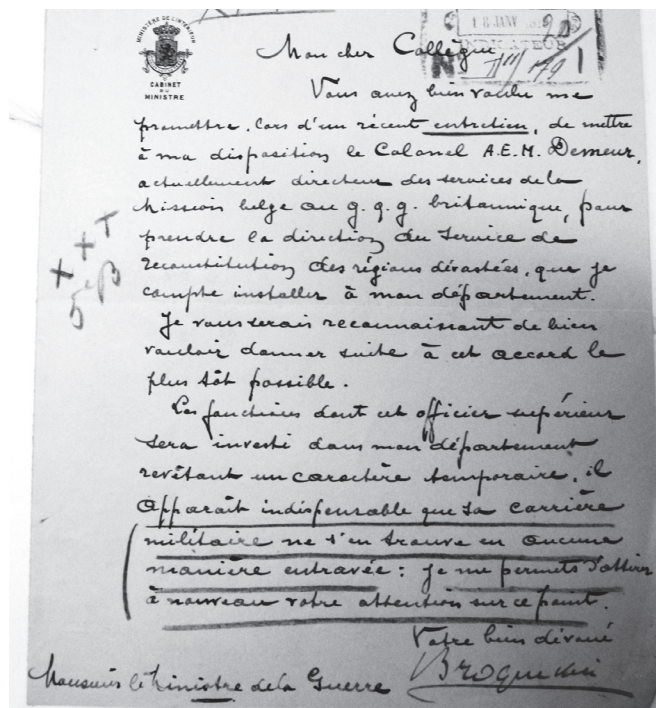 MINISTÈRE DE L'INTÉRIEUR
CABINET
DU
MINISTRE
18 JANV
INDICATEUR
Mon cher Collègue
Vous avez bien voulu me
promettre, lors d'un récent entretien, de mettre
à ma disposition le Colonel A.E.M. Demeur,
actuellement directeur des services de la
Mission belge au g.q.g. britannique, pour
prendre la direction du Service de
reconstitution des régions dévastées, que je
compte installer à mon département.
Je vous serais reconnaissant de bien
vouloir donner suite à cet accord le
plus tôt possible.
Les fonctions dont cet officier supérieur
sera investi dans mon département
revêtant un caractère temporaire, il
apparaît indispensable que sa carrière
militaire ne s'en trouve en aucune
manière entravée : je me permets d'attirer
à nouveau votre attention sur ce point.
Votre bien dévoué
Monsieur le Ministre de la Guerre